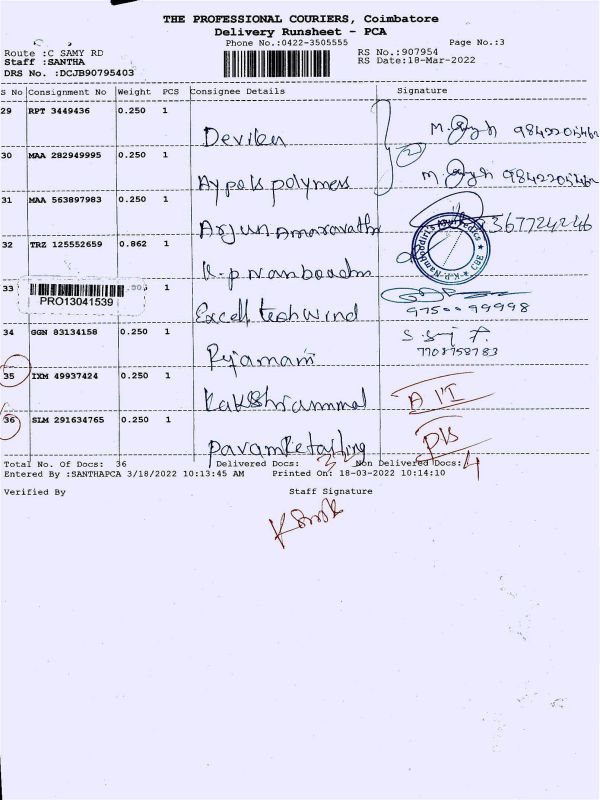 THE PROFESSIONAL COURIERS, Coimbatore
Delivery Runsheet - PCA
Phone No.:0422-3505555 Page No.:3
Route :C SAMY RD RS No.:907954
Staff :SANTHA RS Date:18-Mar-2022
DRS No. :DCJB90795403
S No Consignment No Weight PCS Consignee Details Signature
29 RPT 3449436 0.250 1
Devilen M. 9842205462
30 MAA 282949995 0.250 1
Aypols polymers M. 9842205462
31 MAA 563897983 0.250 1
Arjun Amaravathi 9367724246
32 TRZ 125552659 0.862 1
K.P Namboodiri
33 1
PRO13041539
Excell tech wind 9750099998
34 GGN 83134158 0.250 1
Rjamani 7708758783
35 IXM 49937424 0.250 1
36 SLM 291634765 0.250 1
param Retailing
Total No. Of Docs: 36 Delivered Docs: Non Delivered Docs: 4
Entered By :SANTHAPCA 3/18/2022 10:13:45 AM Printed On: 18-03-2022 10:14:10
Verified By Staff Signature